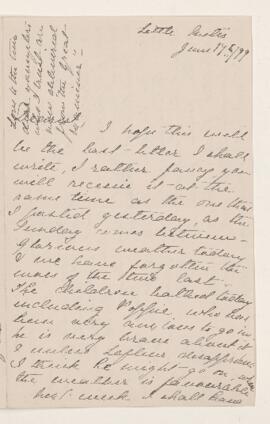 Little
June 17th/99
Love to the two
dear youngsters
who I trust are
now
from the great
I hope this will
be the last letter I shall
write, I rather fancy you
will receive it at the
same time as the one that
I posted yesterday, as the
Sunday comes between -
Glorious weather today
& we have forgotten the
woes of the time last -
The children bathed today
including who has
been very anxious to go in
he is very brave about it
& unless
I think he might go on,
the weather is favourable
next week I shall have